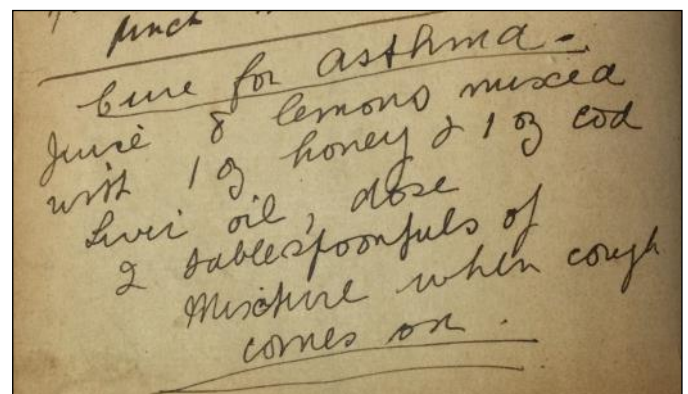 pinch
Cure for asthma -
Juice 8 lemons mixed
with 1 oz honey & 1 oz cod
Liver oil, dose
2 tablespoonfuls of
Mixture when cough
comes on.